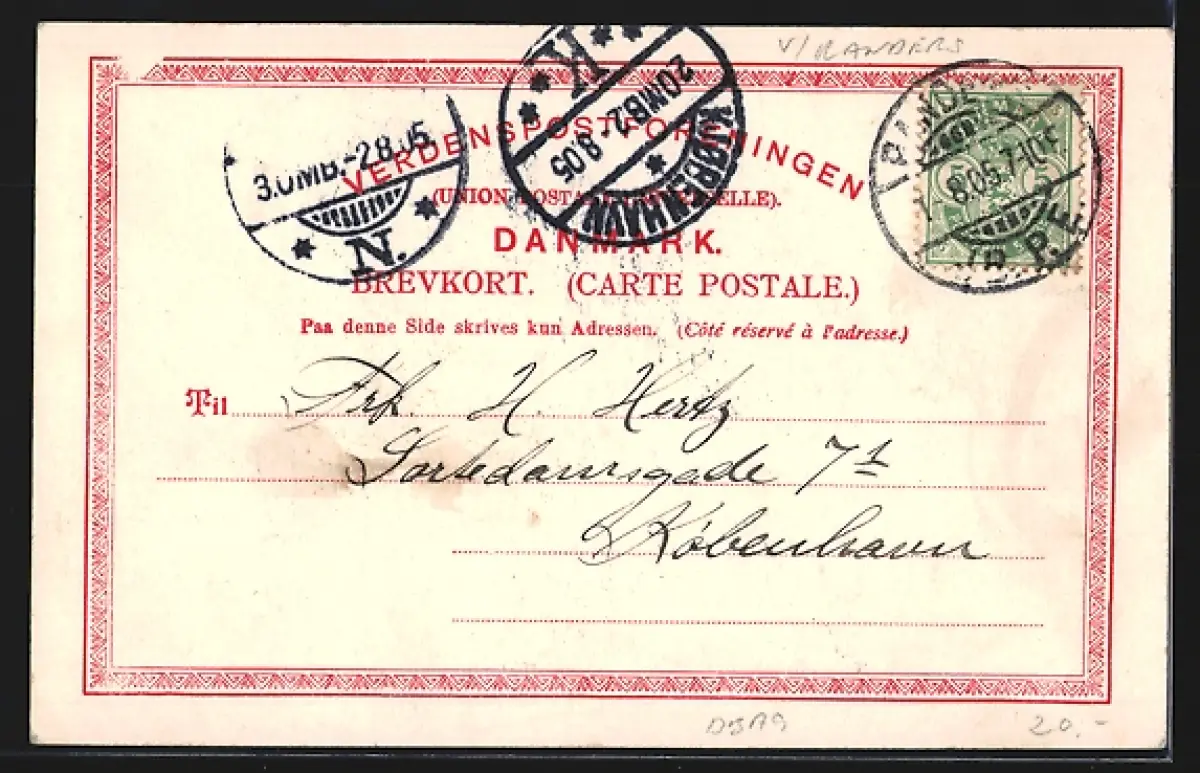 V/RANDERS
3.OMB.-28.05
N.
K
20MB2-8.05
KJØBENHAVN
8.05.7-10E
VERDENSPOSTFORENINGEN
(UNION POSTALE UNIVERSELLE).
DANMARK.
BREVKORT. (CARTE POSTALE.)
Paa denne Side skrives kun Adressen. (Côté réservé à l'adresse.)
Til Frk. H. Hertz
Sortedamsgade 7 1
København
20.-